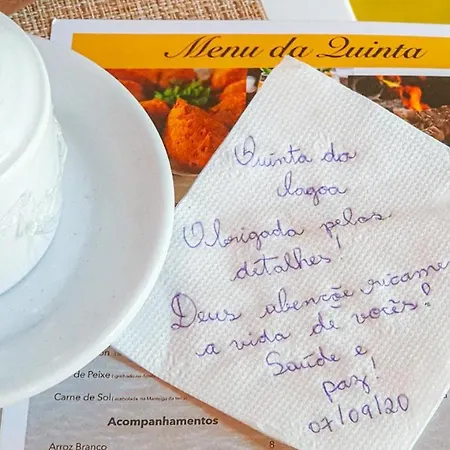 Menu da Quinta
Quinta da
lagoa
Obrigada pelos
detalhes!
Deus abençõe ricame
a vida de vocês!
Saúde e
paz!
07/09/20
de Peixe
Carne de Sol
Acompanhamentos
Arroz Branco 8